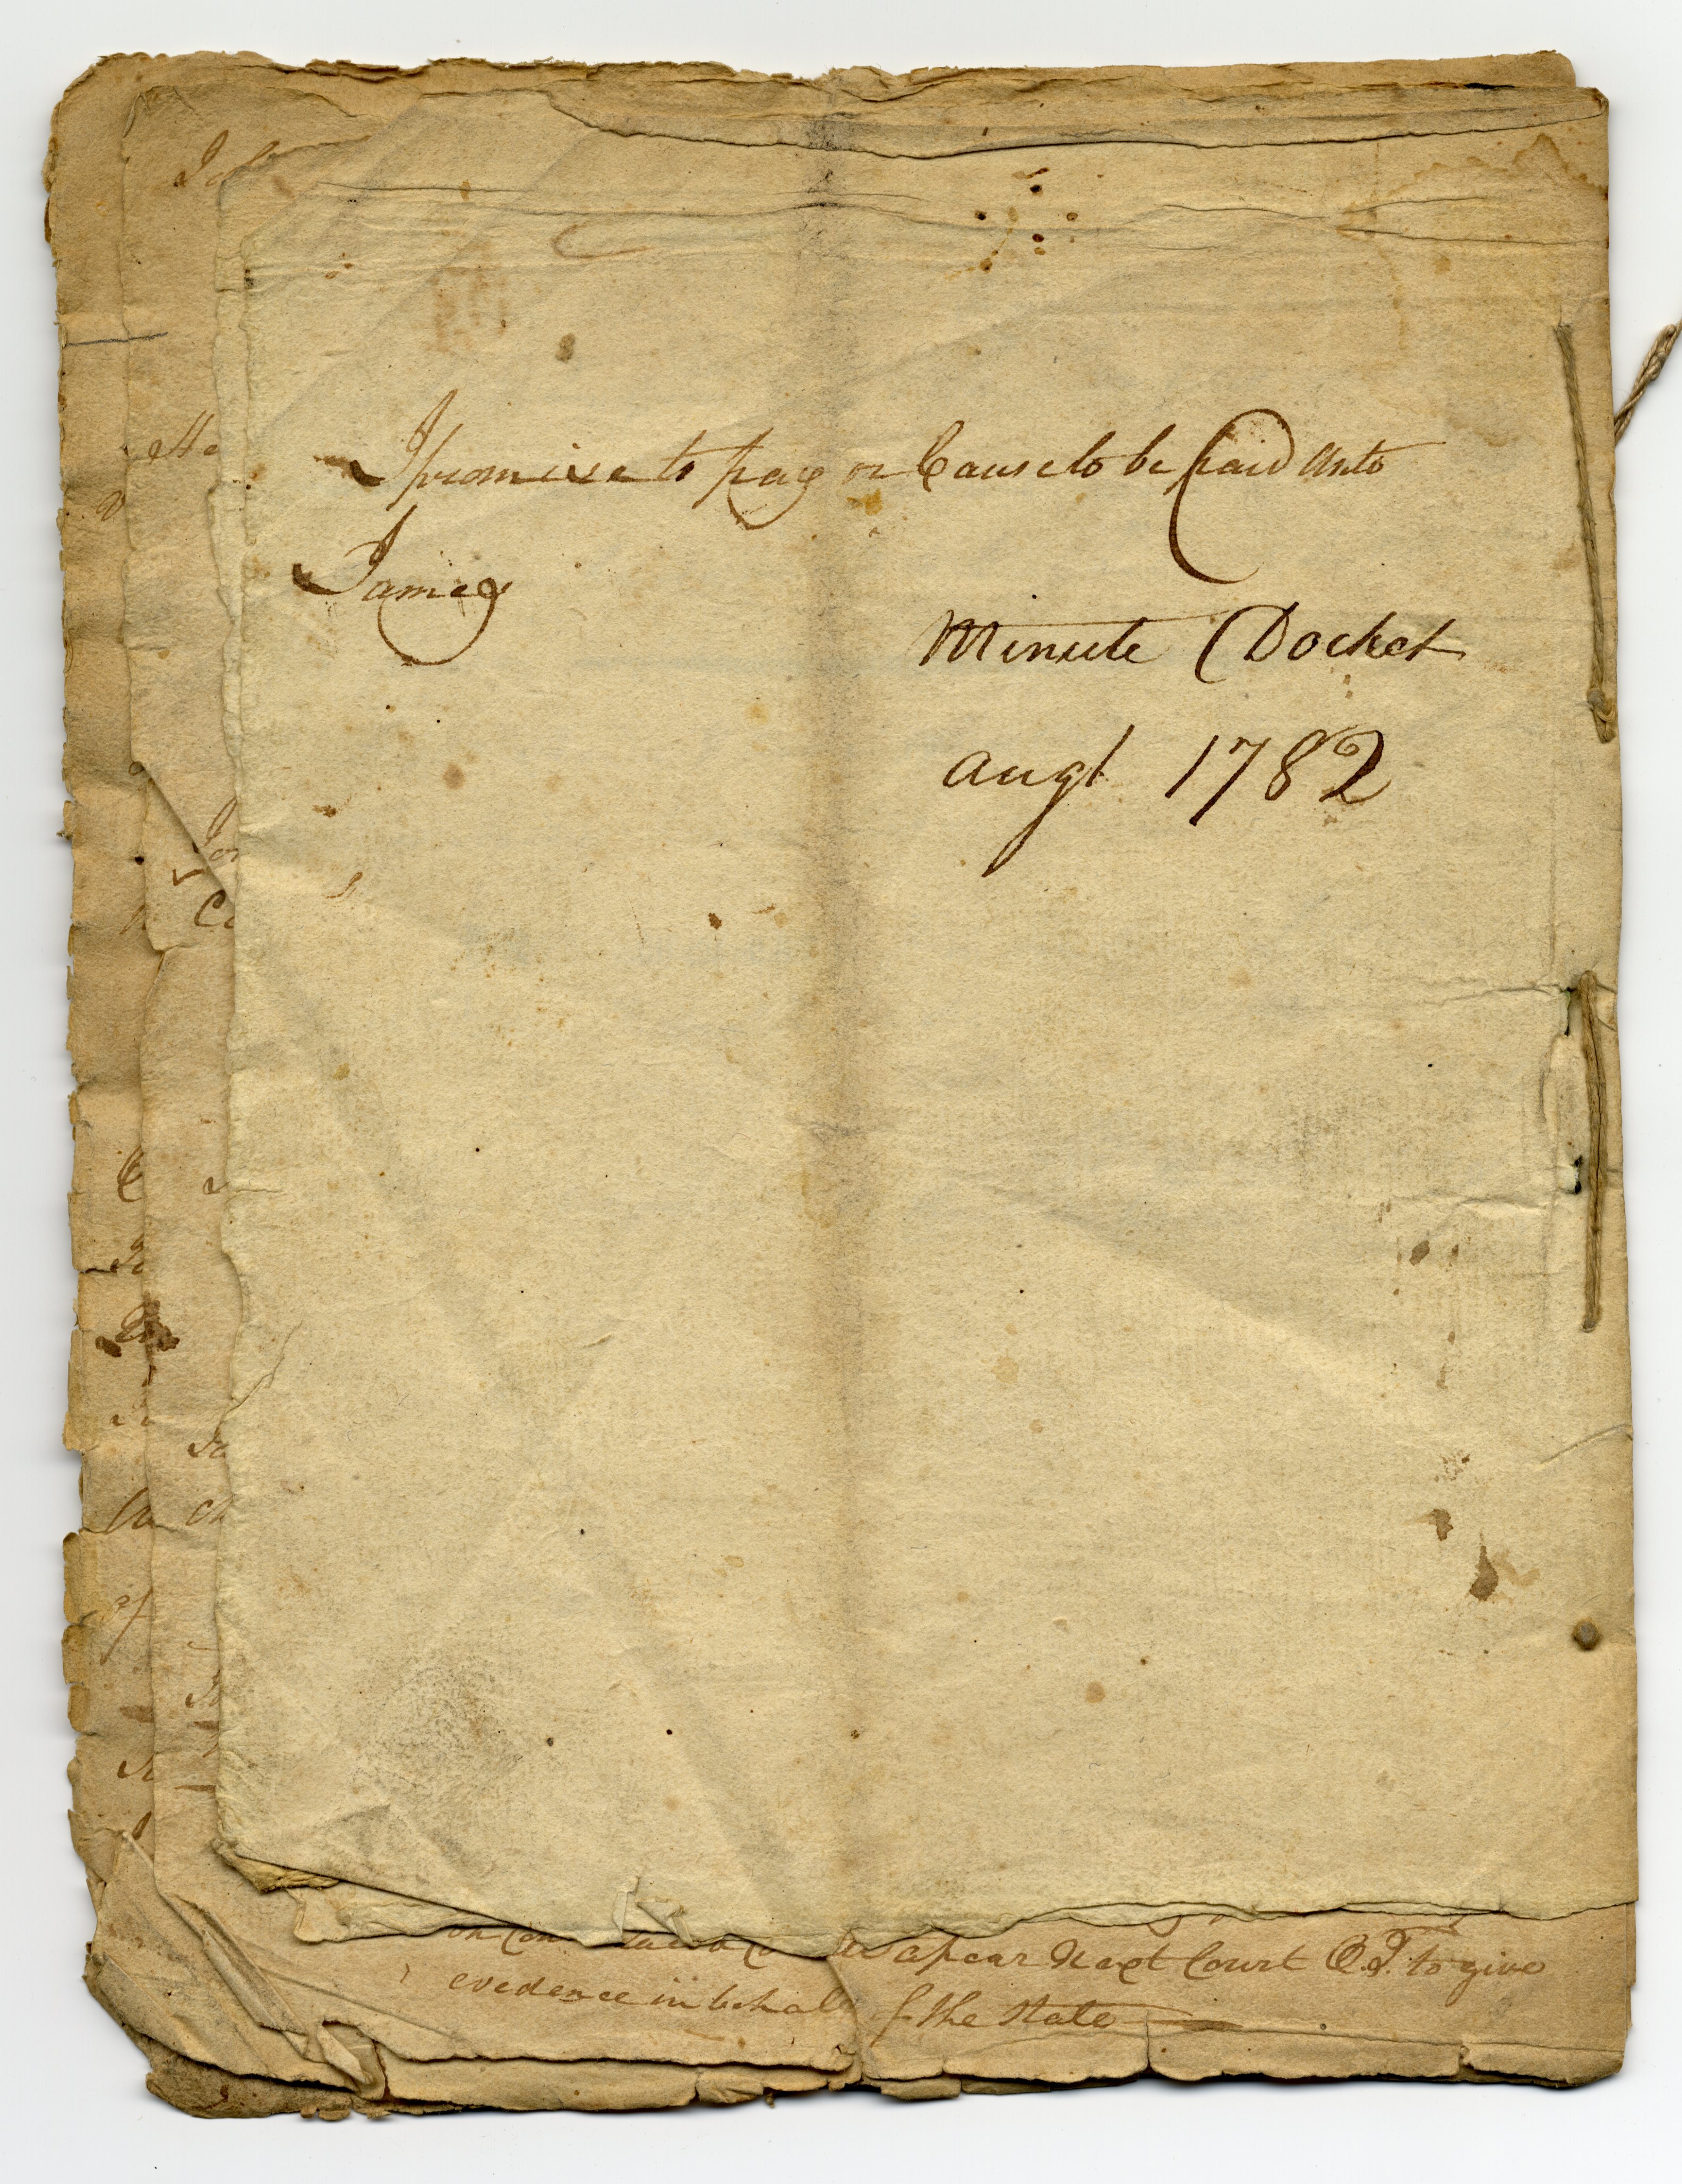 I promise to pay or Cause to be paid unto
James
Minute Docket
augt 1782
apear Next Court O.T. to give
evedence in behalf of the State